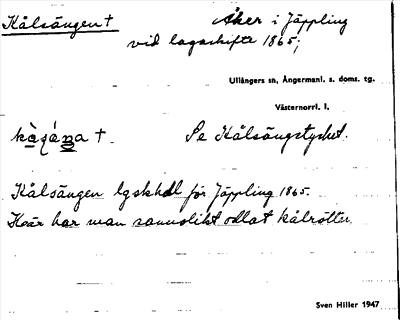 Kålsängen † Åker i Jäppling
vid lagaskifte 1865;
Ullångers sn, Ångermanl. s. doms. tg.
Västernorrl. l.
Se Kålsängstycket.
Kålsängen lgskhdl för Jäppling 1865.
Här har man sannolikt odlat kålrötter
Sven Hiller 1947